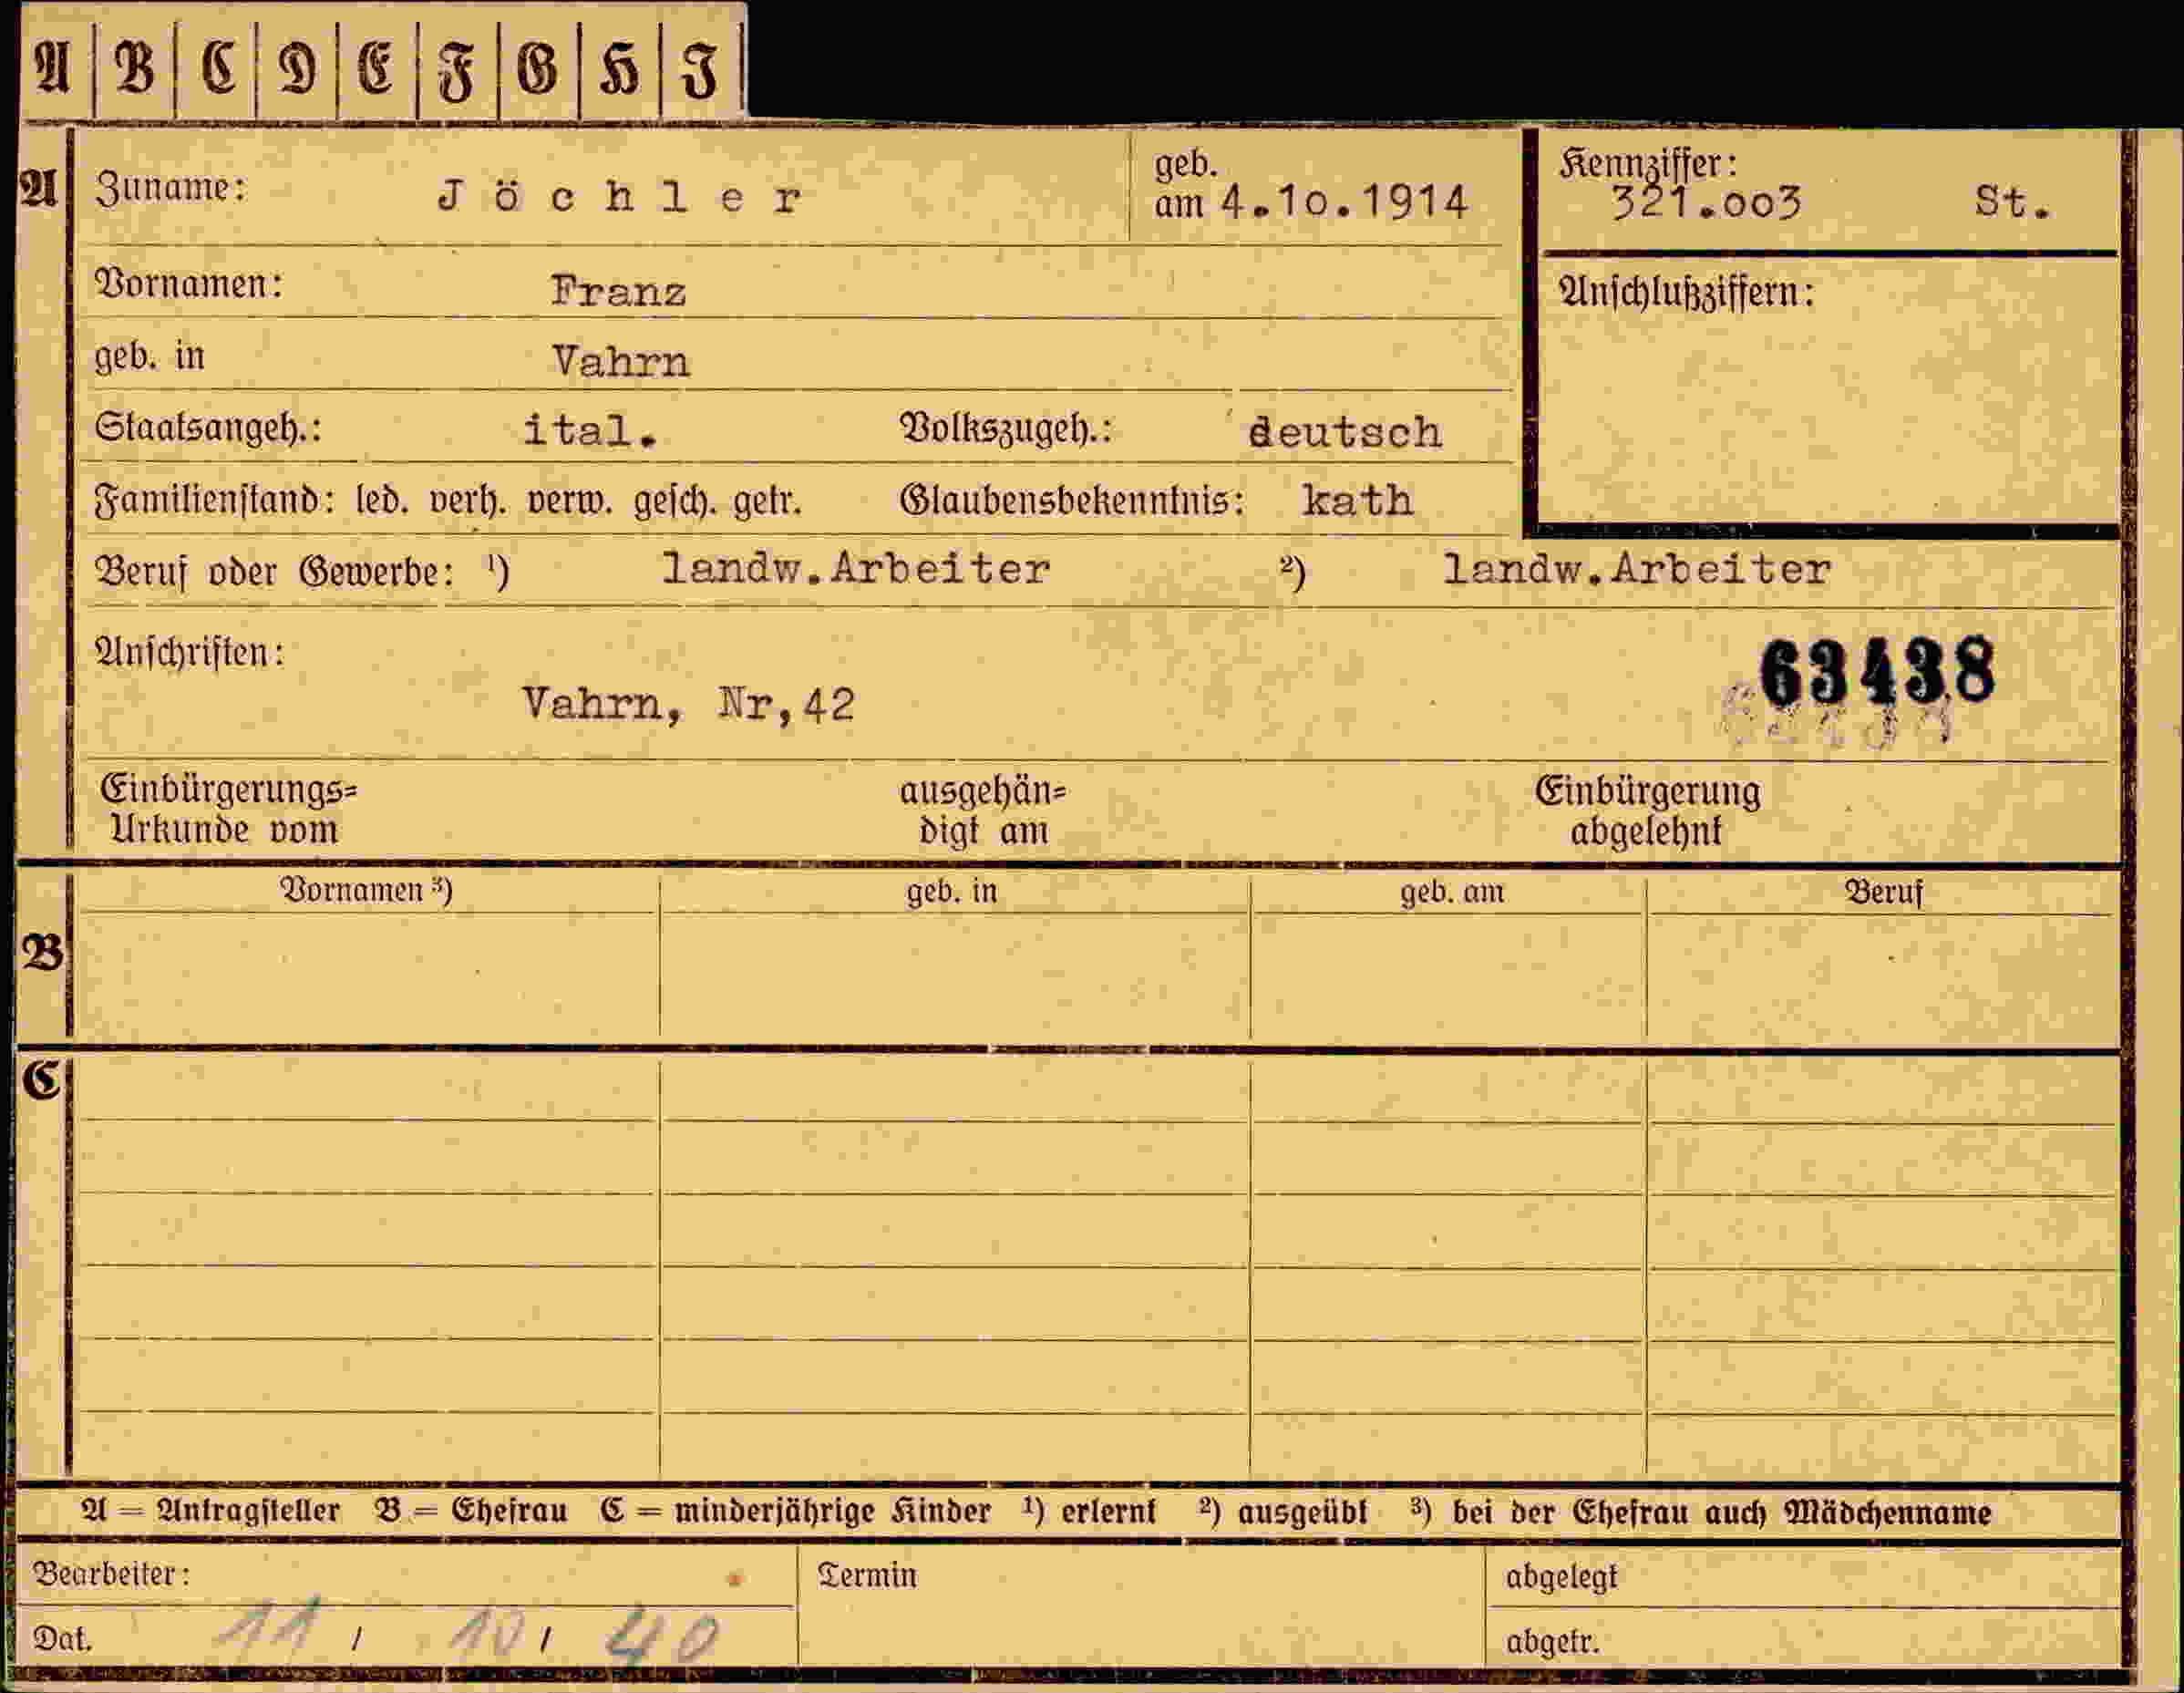 A B C D E F G H I
A Zuname: Jöchler geb. am 4.10.1914 Kennziffer: 321.003 St.
Vornamen: Franz Anschlußziffern:
geb. in Vahrn
Staatsangeh.: ital. Volkszugeh.: deutsch
Familienstand: led. verh. verw. gesch. getr. Glaubensbekenntnis: kath
Beruf oder Gewerbe: 1) landw.Arbeiter 2) landw.Arbeiter
Anschriften: 63438
Vahrn, Nr,42
Einbürgerungs= ausgehän= Einbürgerung
Urkunde vom digt am abgelehnt
Vornamen 3) geb. in geb. am Beruf
B
C
A = Antragsteller B = Ehefrau C = minderjährige Kinder 1) erlernt 2) ausgeübt 3) bei der Ehefrau auch Mädchenname
Bearbeiter: Termin abgelegt
Dat. 11 / 10 / 40 abgetr.